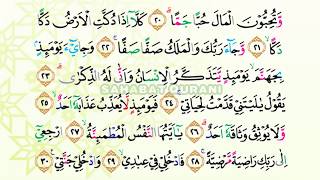 وَّتُحِبُّوْنَ الْمَالَ حُبًّا جَمًّا ٢٠ كَلَّآ اِذَا دُكَّتِ الْاَرْضُ دَكًّا
دَكًّا ٢١ وَّجَآءَ رَبُّكَ وَالْمَلَكُ صَفًّا صَفًّا ٢٢ وَجِايْٓءَ يَوْمَئِذٍ
بِجَهَنَّمَ يَوْمَئِذٍ يَّتَذَكَّرُ الْاِنْسَانُ وَاَنّٰى لَهُ الذِّكْرٰى ٢٣
SAHABATQURANI
يَقُوْلُ يٰلَيْتَنِيْ قَدَّمْتُ لِحَيَاتِيْ ٢٤ فَيَوْمَئِذٍ لَّا يُعَذِّبُ عَذَابَهٗٓ اَحَدٌ ٢٥
وَّلَا يُوْثِقُ وَثَاقَهٗٓ اَحَدٌ ٢٦ يٰٓاَيَّتُهَا النَّفْسُ الْمُطْمَئِنَّةُ ٢٧ ارْجِعِيْٓ
اِلٰى رَبِّكِ رَاضِيَةً مَّرْضِيَّةً ٢٨ فَادْخُلِيْ فِيْ عِبٰدِيْ ٢٩ وَادْخُلِيْ جَنَّتِيْ ٣٠